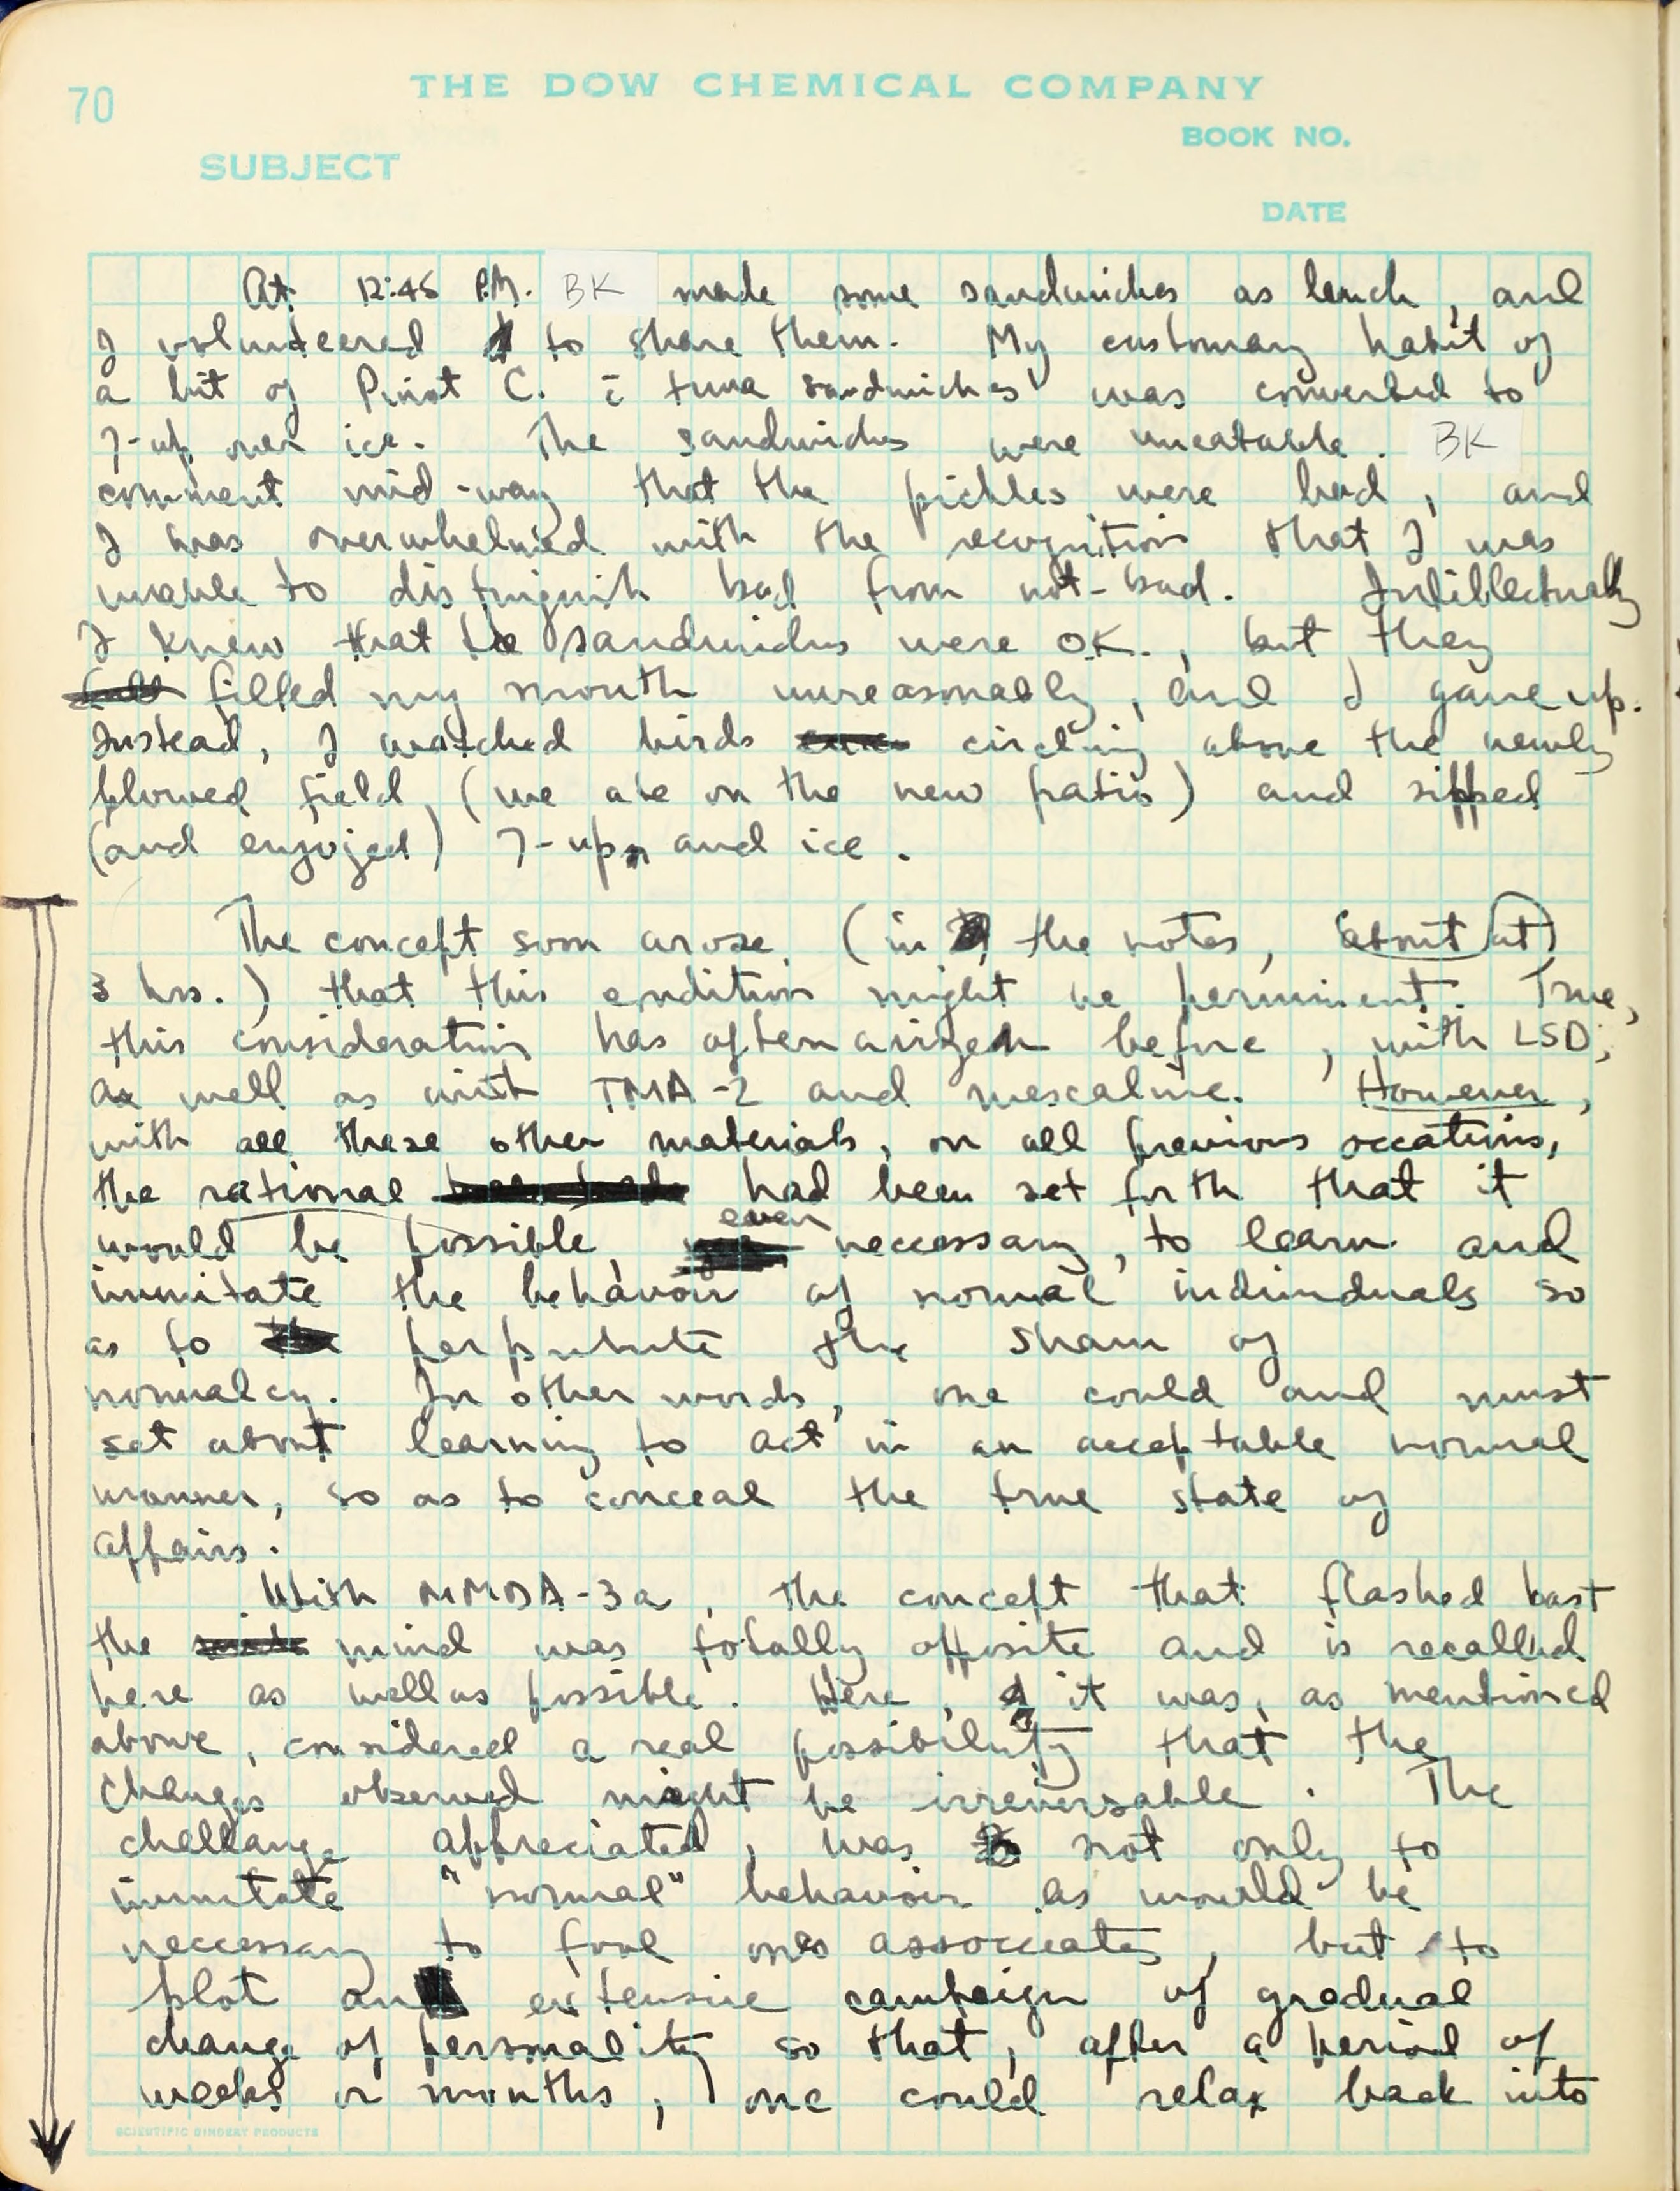 70
THE DOW CHEMICAL COMPANY
BOOK NO.
SUBJECT
DATE
At 12:45 P.M. BK made some sandwiches as lunch, and
I volunteered to share them. My customary habit of
a bit of Pinot C. c̄ tuna sandwiches was converted to
7-up over ice. The sandwiches were uneatable. BK
comment mid-way that the pickles were bad, and
I was overwhelmed with the recognition that I was
unable to distinguish bad from not-bad. Intillectually
I knew that the sandwiches were O.K., but they
filled my mouth unreasonably, and I gave up.
Instead, I watched birds circling above the newly
plowed field, (we ate on the new patio) and sipped
(and enjoyed) 7-up and ice.
The concept soon arose, (in the notes, about at
3 hrs.) that this condition might be perminent. True,
this consideration has often arizen before, with LSD,
as well as with TMA-2 and mescaline. However,
with all these other materials, on all previous occations,
the rational had been set forth that it
would be possible, even neccessary, to learn and
immitate the behavior of normal individuals so
as to perputute the sham of
normalcy. In other words, one could and must
set about learning to act in an acceptable normal
manner, so as to conceal the true state of
affairs.
With MMDA-3a, the concept that flashed past
the mind was totally opposite and is recalled
here as well as possible. Here, it was, as mentioned
above, considered a real possibility that the
changes observed might be irreversable. The
challange appreciated, was not only to
immitate "normal" behavior as would be
neccessary to fool ones associates, but to
plot an extensive campaign of gradual
change of personality so that, after a period of
weeks or months, one could relax back into
SCIENTIFIC BINDERY PRODUCTS